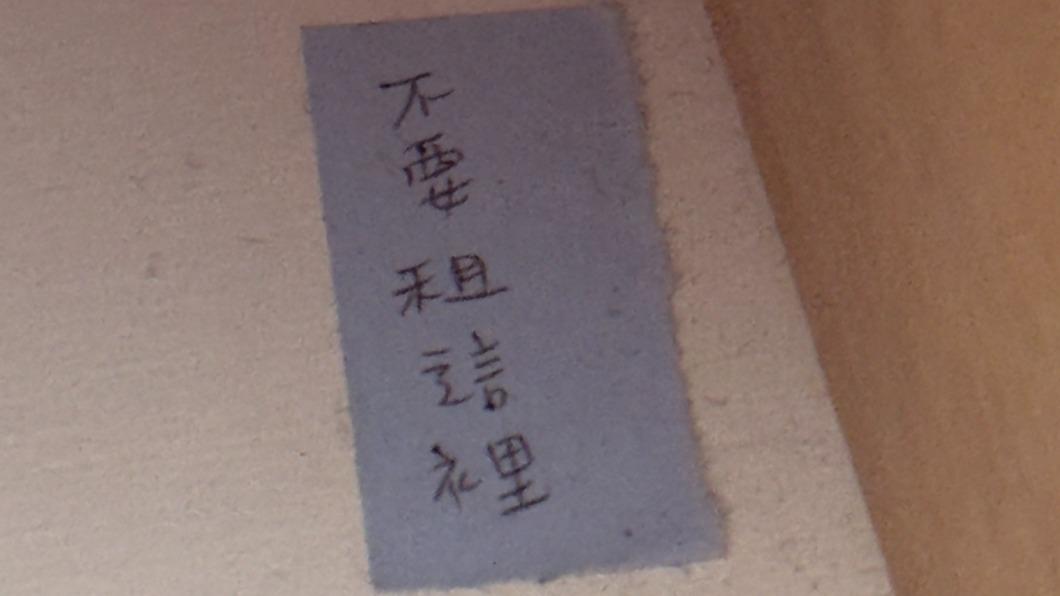 不要租這裡